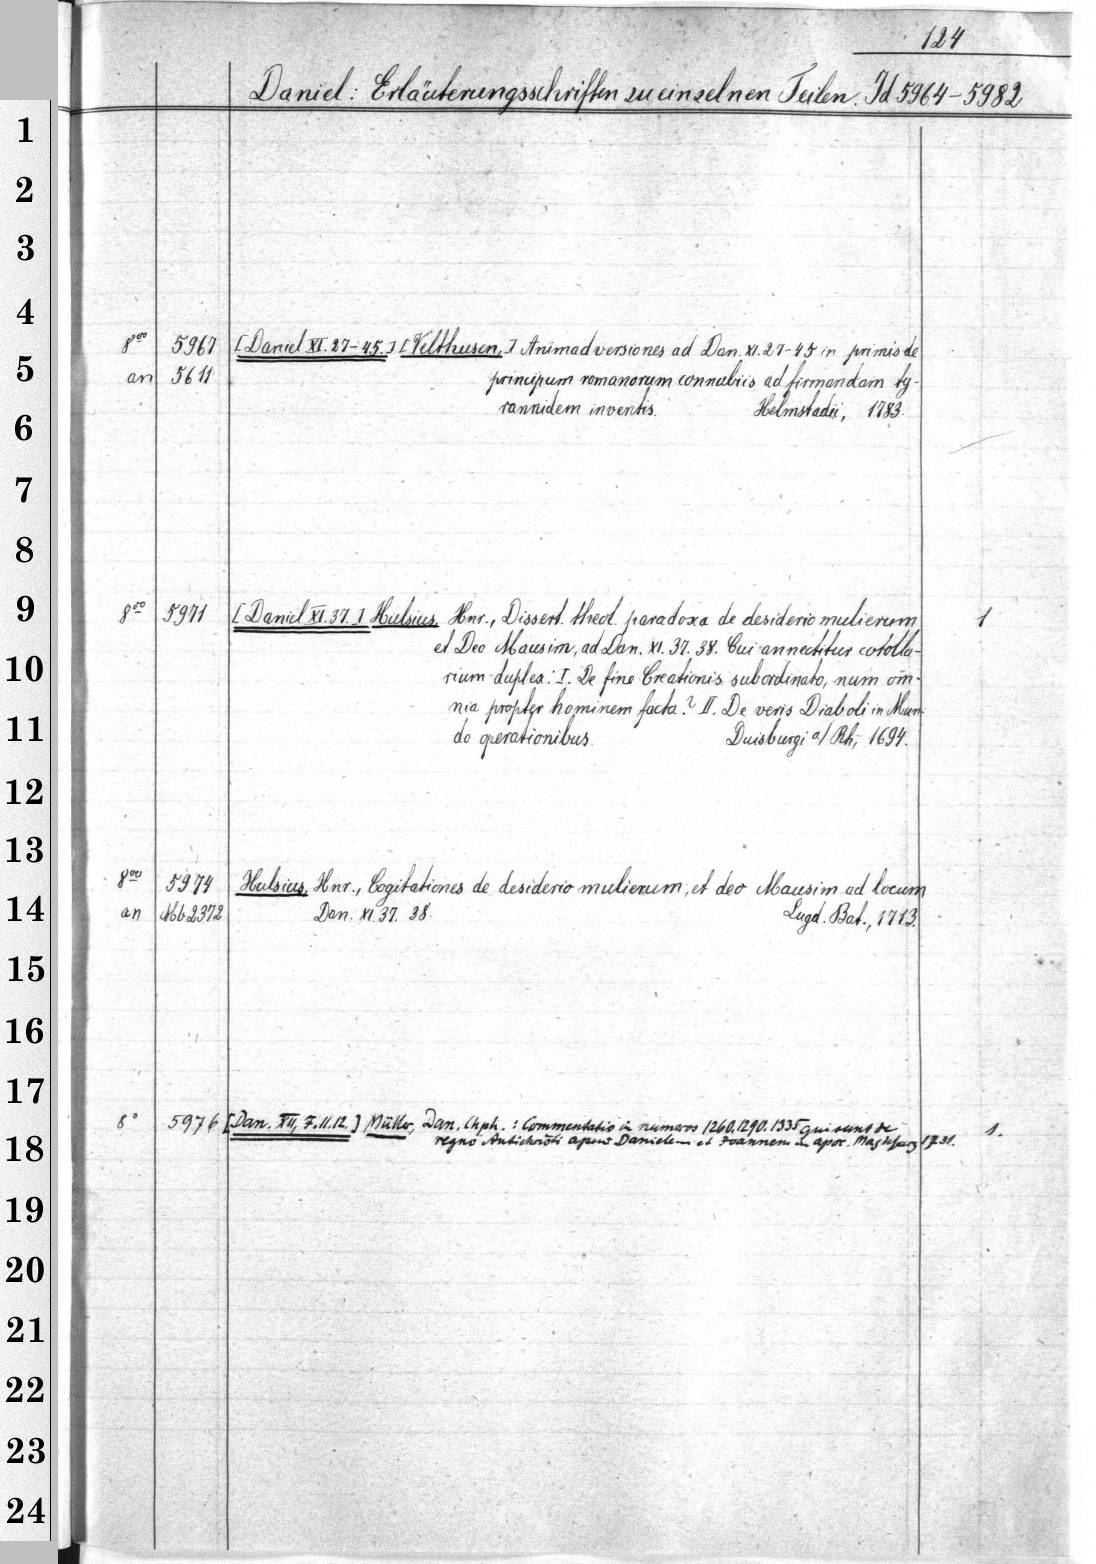 124
Daniel: Erläuterungsschriften zu einzelnen Teilen. Id 5964-5982
1
2
3
4
5
6
7
8
9
10
11
12
13
14
15
16
17
18
19
20
21
22
23
24
8vo 5967 [Daniel XI. 27-45.] [Velthusen,] Animadversiones ad Dan. XI. 27-45 in primis de
an 5611 principum romanorum connubiis ad firmandam ty-
rannidem inventis. Helmstadii, 1783.
8vo 5971 [Daniel XI. 37.] Hulsius, Hnr., Dissert. theol. paradoxa de desiderio mulierum 1
et Deo Mausim, ad Dan. XI. 37. 38. Cui annectitur corolla-
rium duplex: I. De fine Creationis subordinato, num om̄-
nia propter hominem facta? II. De veris Diaboli in Mun-
do operationibus. Duisburgi a/ Rh., 1694.
8vo 5974 Hulsius, Hnr., Cogitationes de desiderio mulierum, et deo Mausim ad locum
an Mb 2372 Dan. XI. 37. 38. Lugd. Bat., 1713.
8° 5976 [Dan. XII, 7.11.12.] Müller, Dan. Chph.: Commentatio in numeros 1260.1290.1335 qui sunt de 1.
regno Antichristi apud Danielem et Joannem in apoc. Magdeburg 1731.